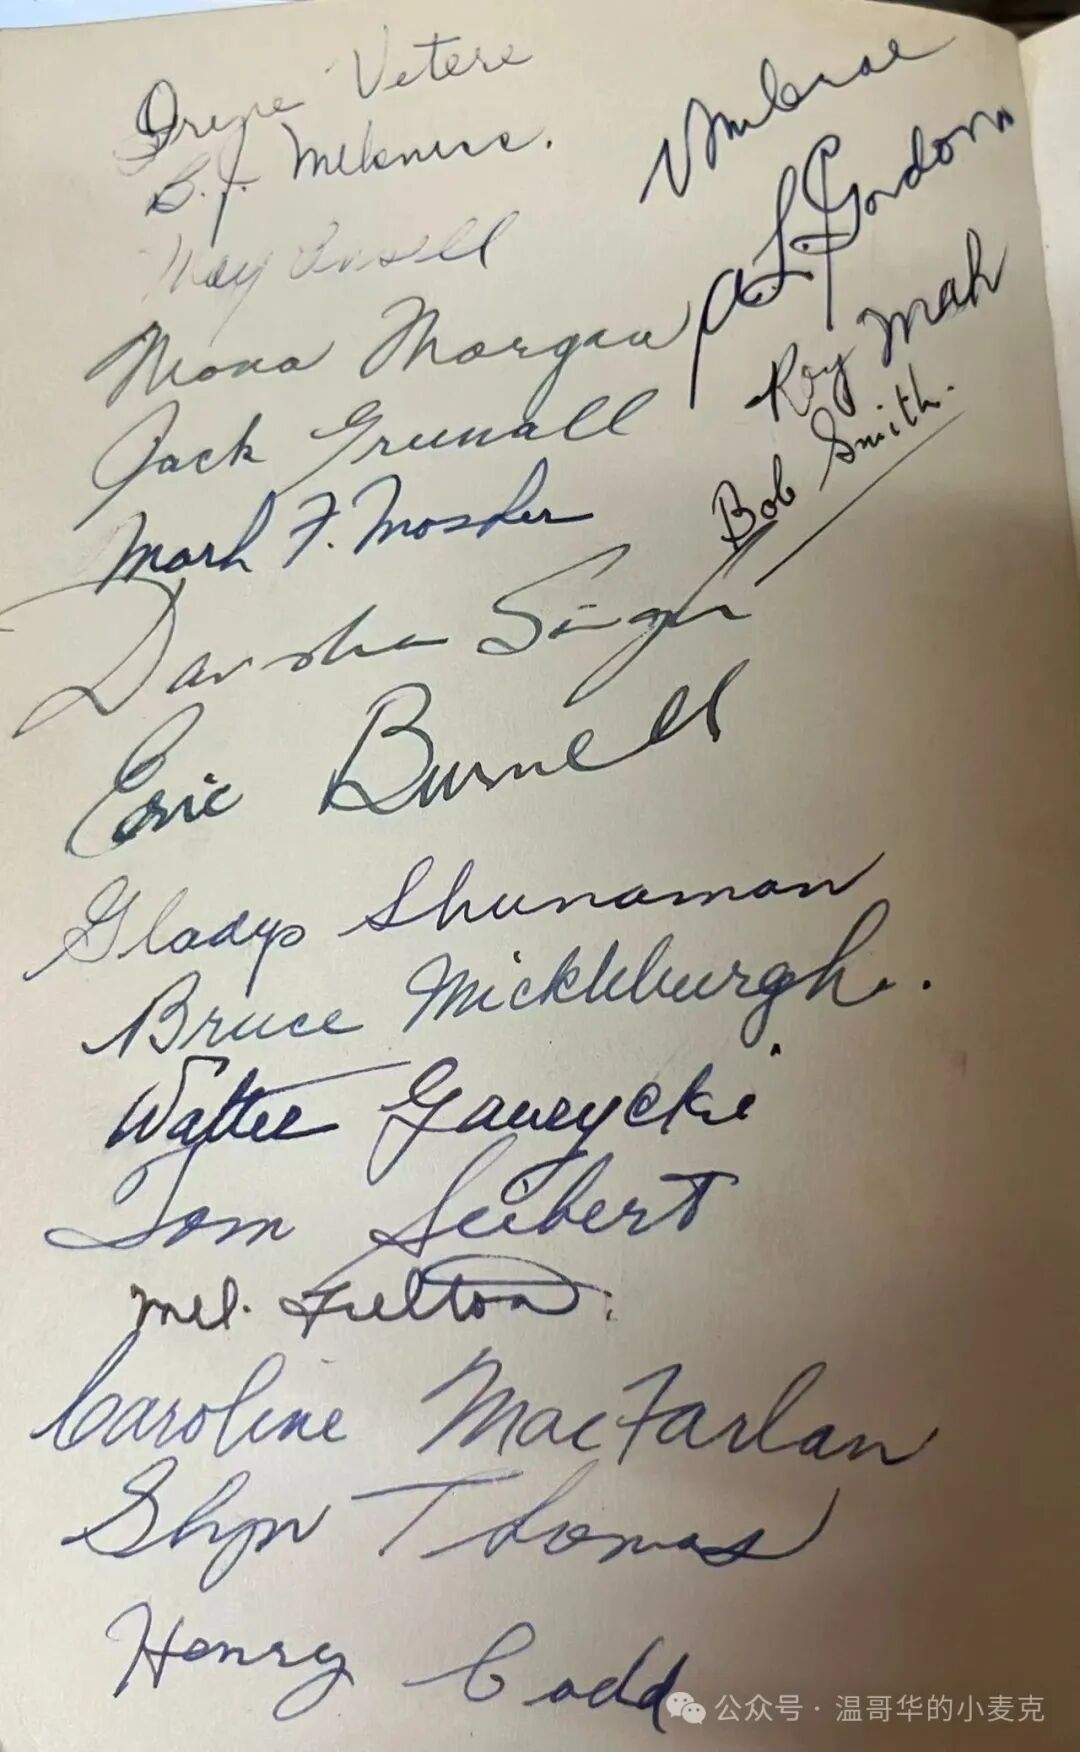 Irene Vetere
B.J. Melsness.
May Ansell
Mona Morgan
Jack Greenall
Mark F. Mosher
Darshan Singh
Eric Burnell
Gladys Shunaman
Bruce Mickleburgh.
Walter Gawrycki
Tom Seibert
Mel. Fulton.
Caroline MacFarlan
Glyn Thomas
Henry Codd
A.L. Gordon
Roy Mah
Bob Smith.
公众号·温哥华的小麦克